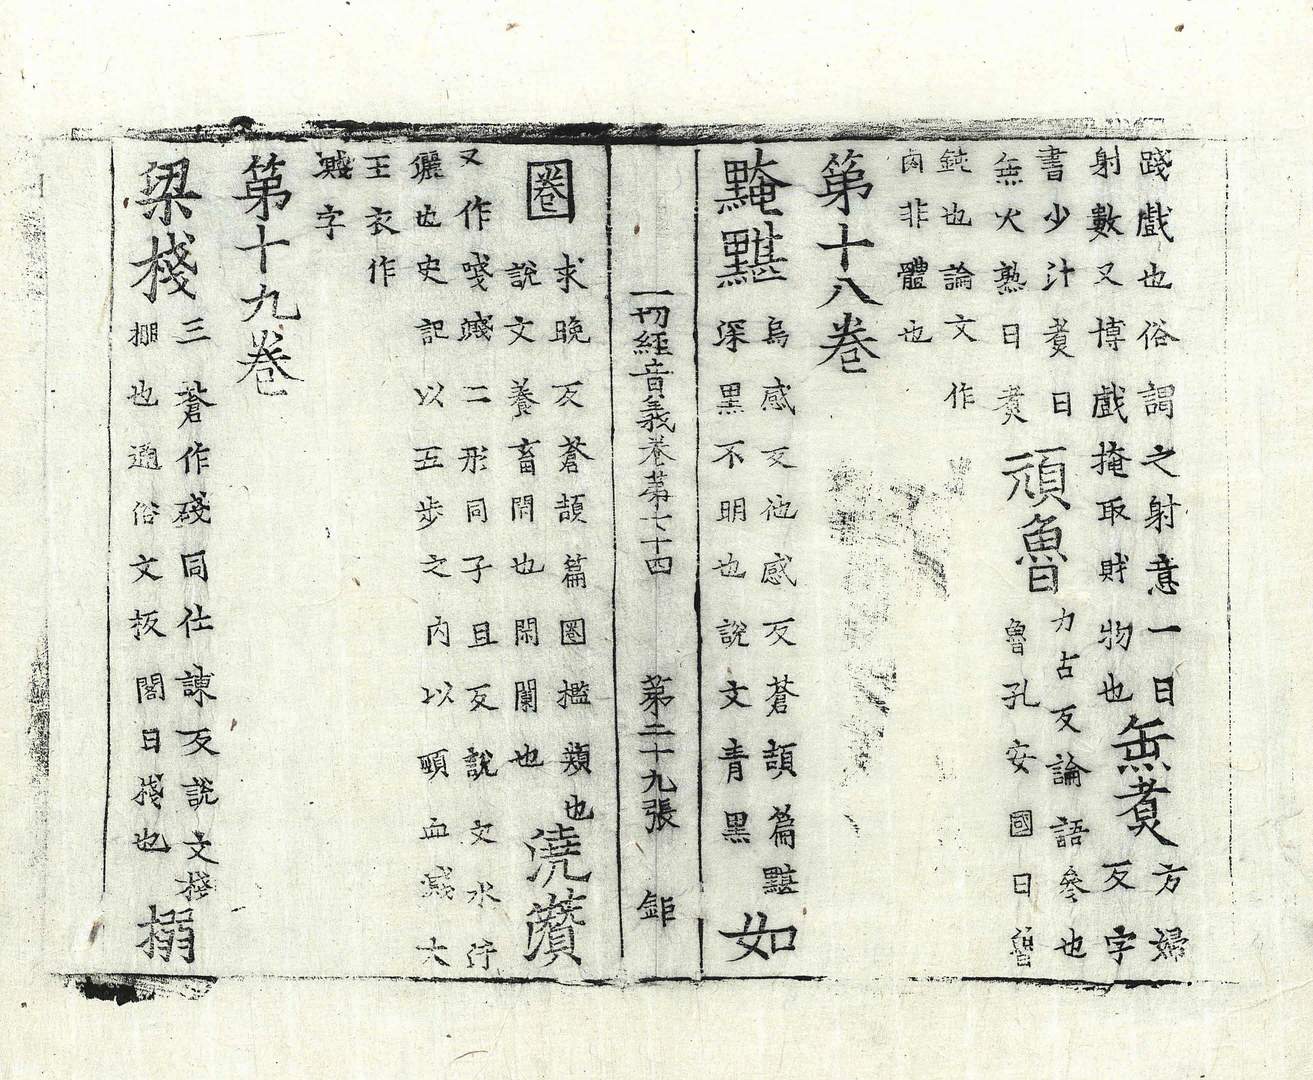 踐戲也俗謂之射意一曰
射數又博戲掩取財物也
缹煮
方婦
反字
書少汁煮曰
無火熟曰煮
頑魯
力古反論語參也
魯孔安國曰魯
鈍也論文作
鹵非體也
第十八卷
黤黮
烏感反他感反蒼頡篇黮
深黑不明也說文青黑
如
一切經音義卷第七十四
第二十九張
鉅
圈
求晚反蒼頡篇圈檻類也
說文養畜閑也閑闌也
澆灒
又作唼濺二形同子旦反說文水汙
灑也史記以五步之內以頸血濺大
王衣作
濺字
第十九卷
梁棧
三蒼作碊同仕諫反說文棧
棚也通俗文板閣曰棧也
搦